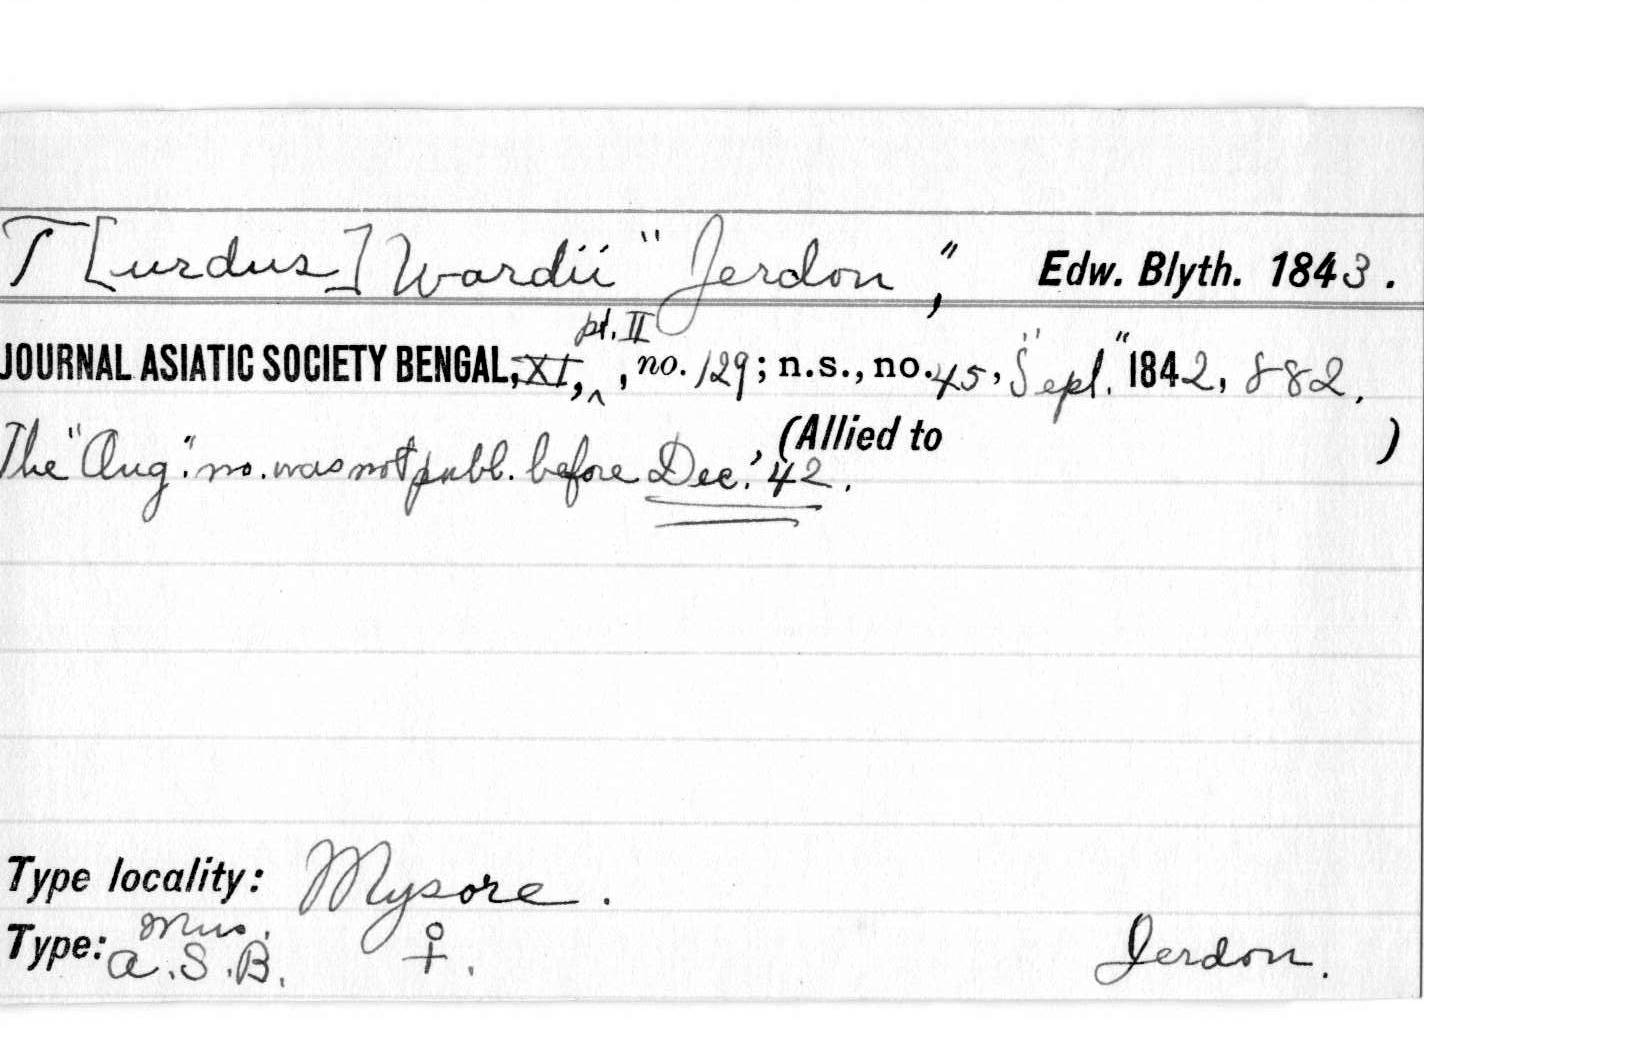 T[urdus] Wardii "Jerdon," Edw. Blyth. 1843.
pt. II
JOURNAL ASIATIC SOCIETY BENGAL, XI, ^ , no. 129; n.s., no. 45, "Sept." 1842, 882.
, (Allied to )
The "Aug." no. was not publ. before Dec. '42.
Type locality: Mysore.
Mus.
Type: A.S.B. ♀. Jerdon.